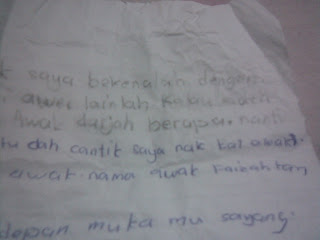 k saya bekenalah dengan
awek lainlah kalau mata
awak darjah berapa. nanti
tu dah cantik saya nak kat awak).
awak. nama awak Faikah tan
depan muka mu sayang.